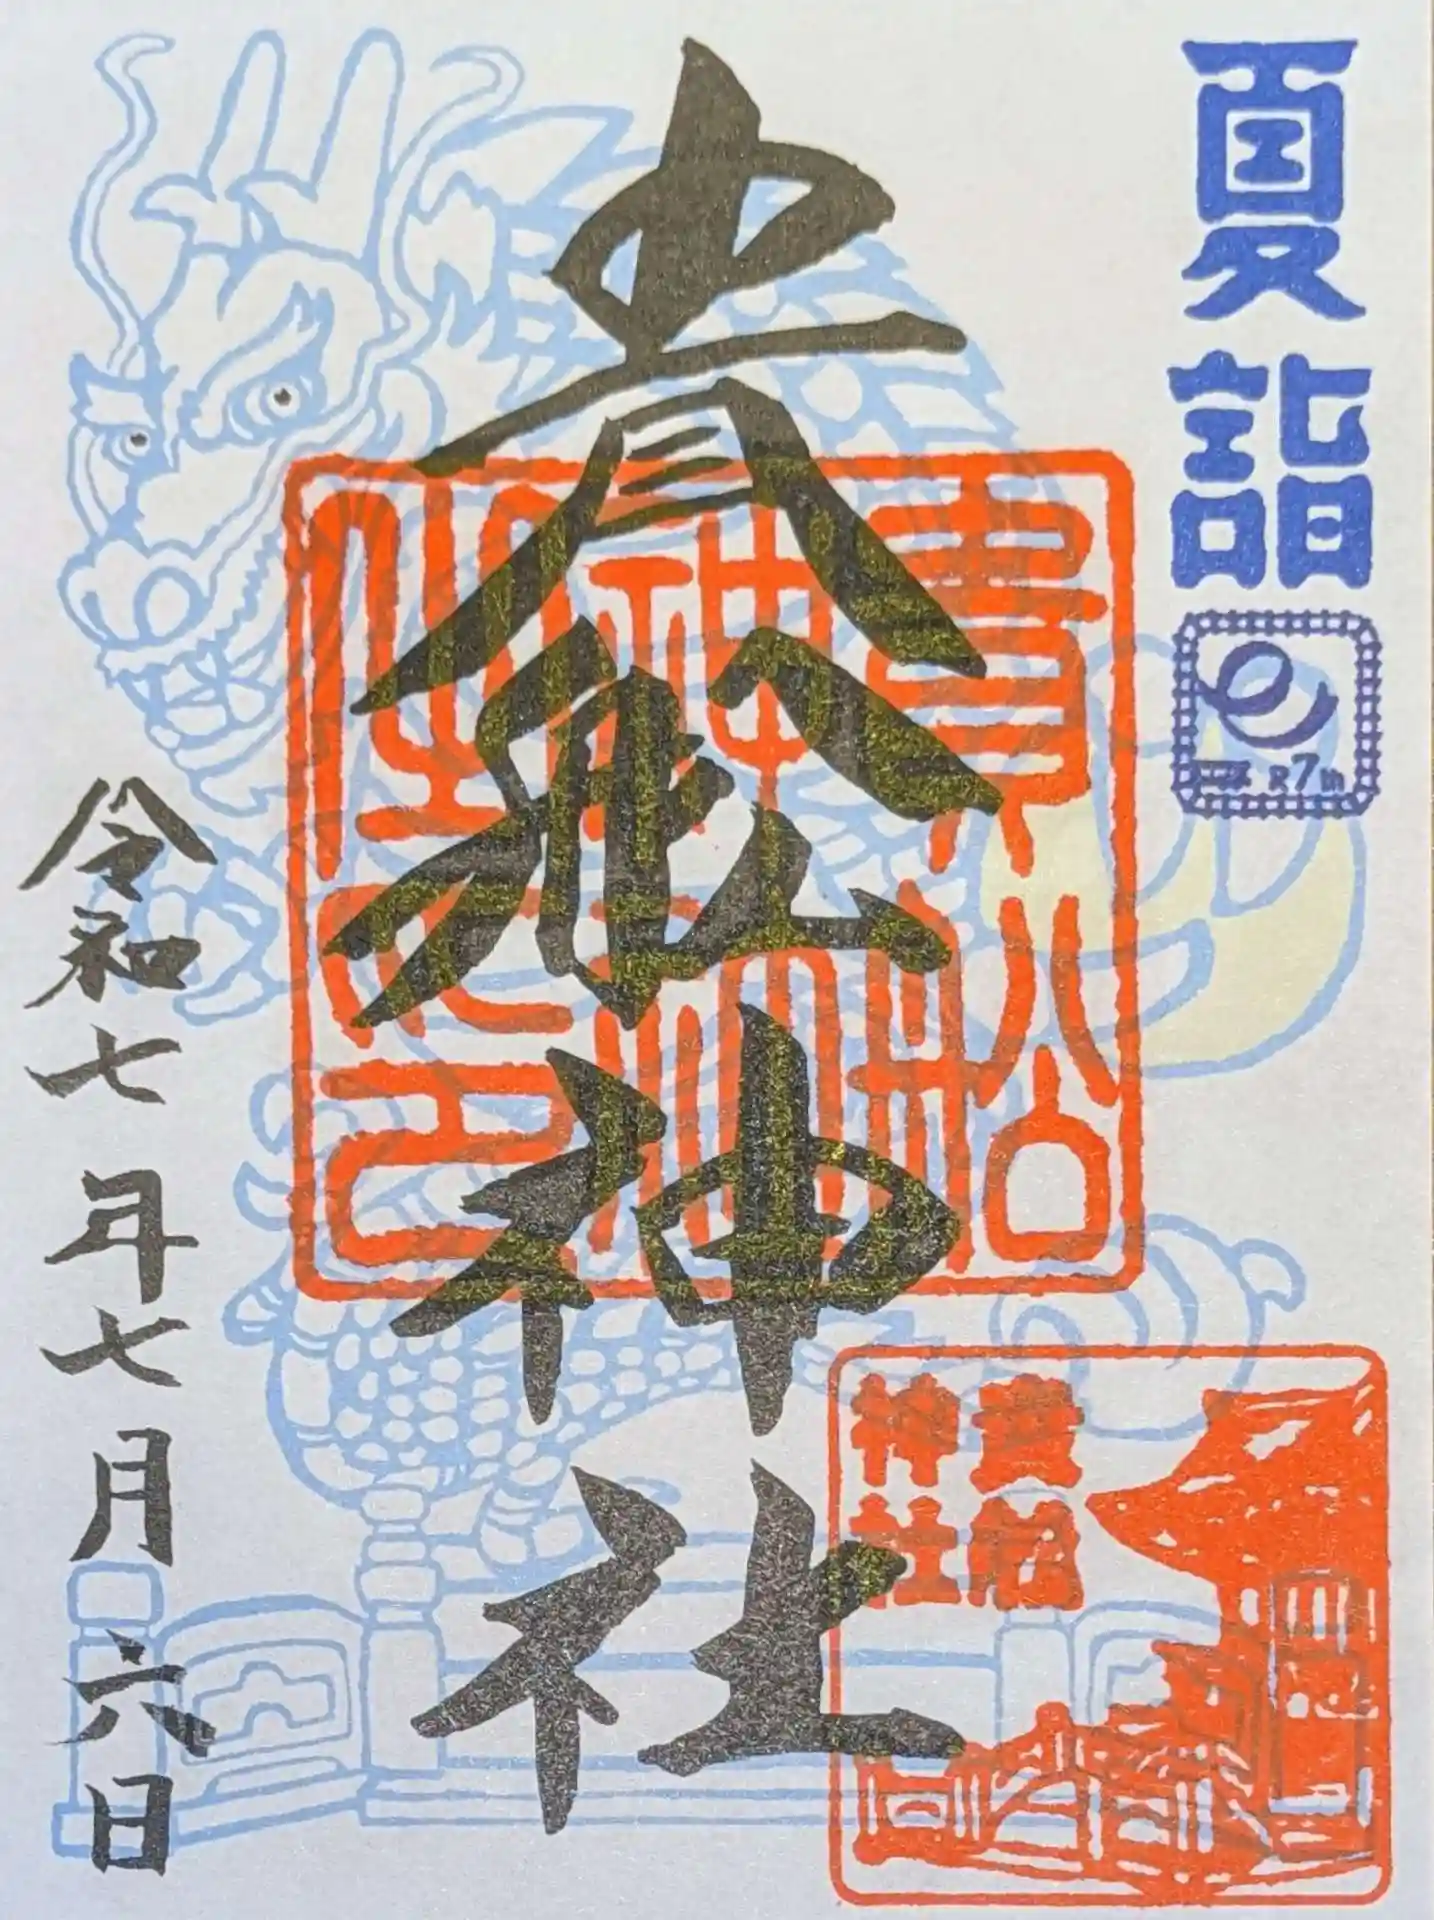 夏詣
R7
貴舩神社
貴船
神社
貴船
神社
之印
令和七年七月六日